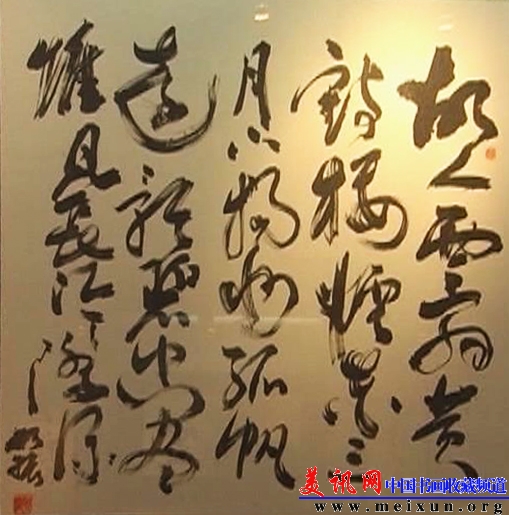 故人西辞黄
鶴楼煙花三
月下揚州孤帆
遠影碧空尽
惟見長江天際流
美讯网
中国书画收藏频道
www.meixun.org